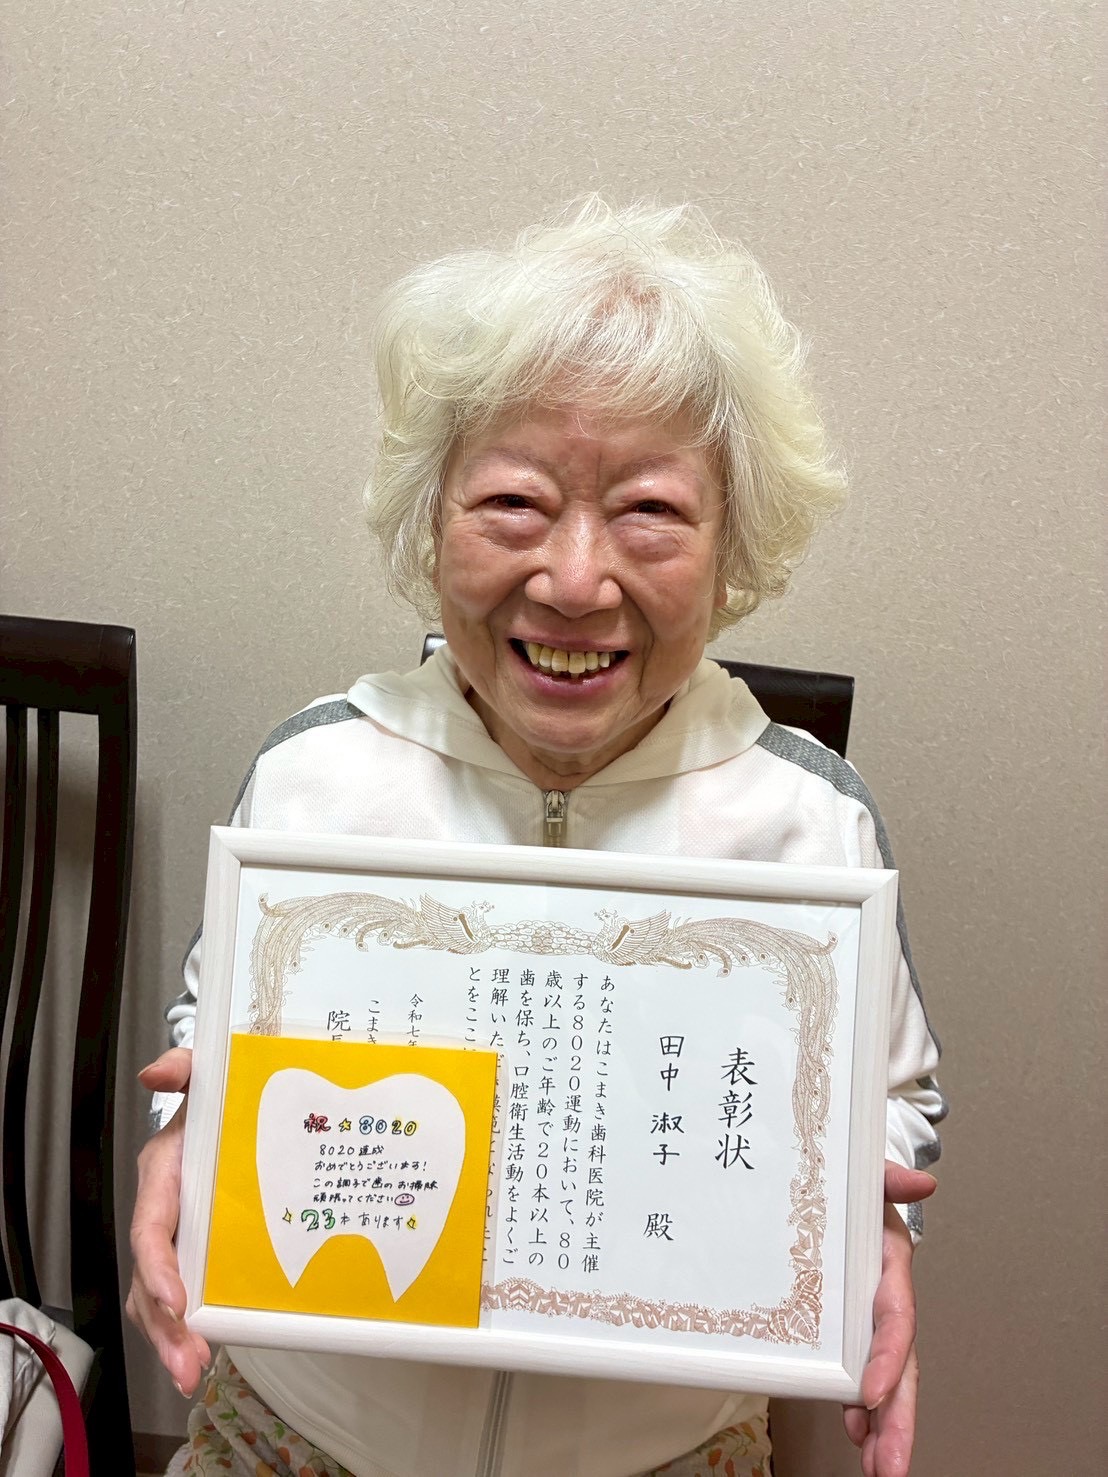 表彰状
田中 淑子 殿
あなたはこまき歯科医院が主催
する8020運動において、80
歳以上のご年齢で20本以上の
歯を保ち、口腔衛生活動をよくご
理解いただ
とをここに
令和七年
こまき
院長
祝★8020
8020達成
おめでとうございます!
この調子で歯のお掃除
頑張ってください
23本あります